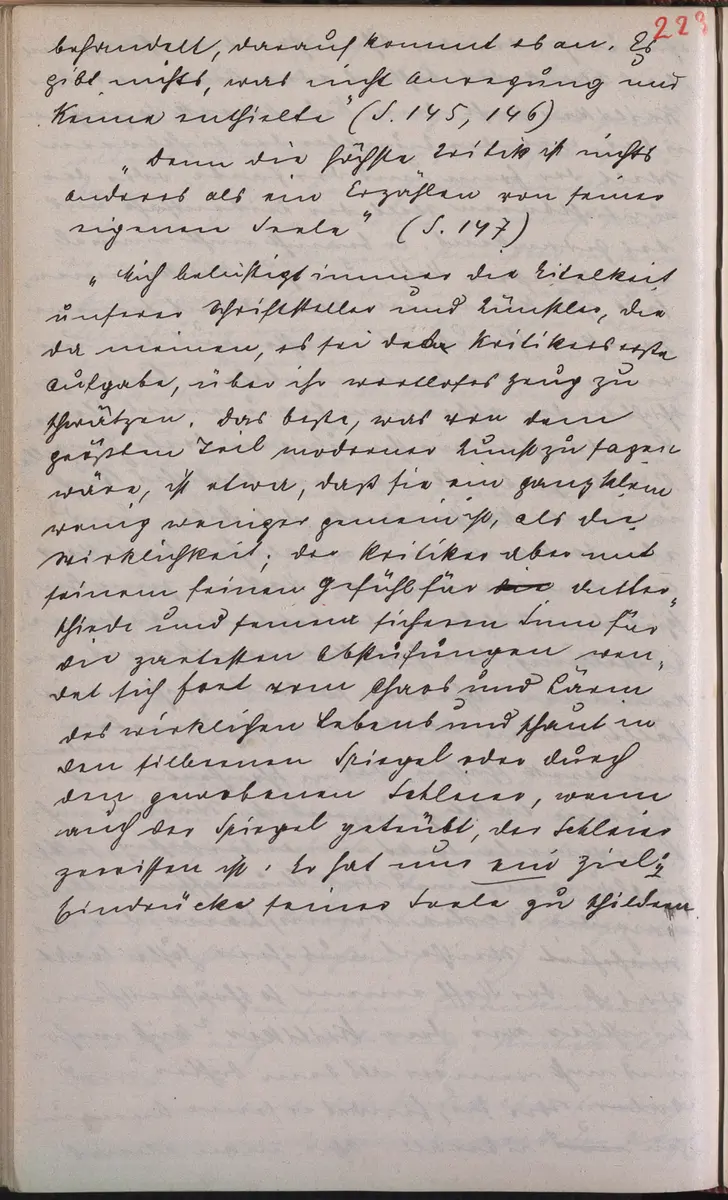 223
behandelt, darauf kommt es an. Es
gibt nichts, was nicht Anregung und
Keime enthielte" (S. 145, 146)
„Denn die höchste Kritik ist nichts
anderes als ein Erzählen von seiner
eigenen Seele" (S. 147)
„Mich belustigt immer die Eitelkeit
unserer Schriftsteller und Künstler, die
da meinen, es sei des Kritikers erste
Aufgabe, über ihr wertloses Zeug zu
schwätzen. Das beste, was von dem
größten Teil moderner Kunst zu sagen
wäre, ist etwa, daß sie ein ganz klein
wenig weniger gemein ist, als die
Wirklichkeit; der Kritiker aber mit
seinem feinen Gefühl für die Unter„
schiede und seinem sicheren Sinn für
die zartesten Abstufungen wen„
det sich fort vom Chaos und Lärm
des wirklichen Lebens und schaut in
den silbernen Spiegel oder durch
den gewobenen Schleier, wenn
auch der Spiegel getrübt, der Schleier
zerrissen ist. Er hat nur ein Ziel:
Eindrücke seiner Seele zu schildern"